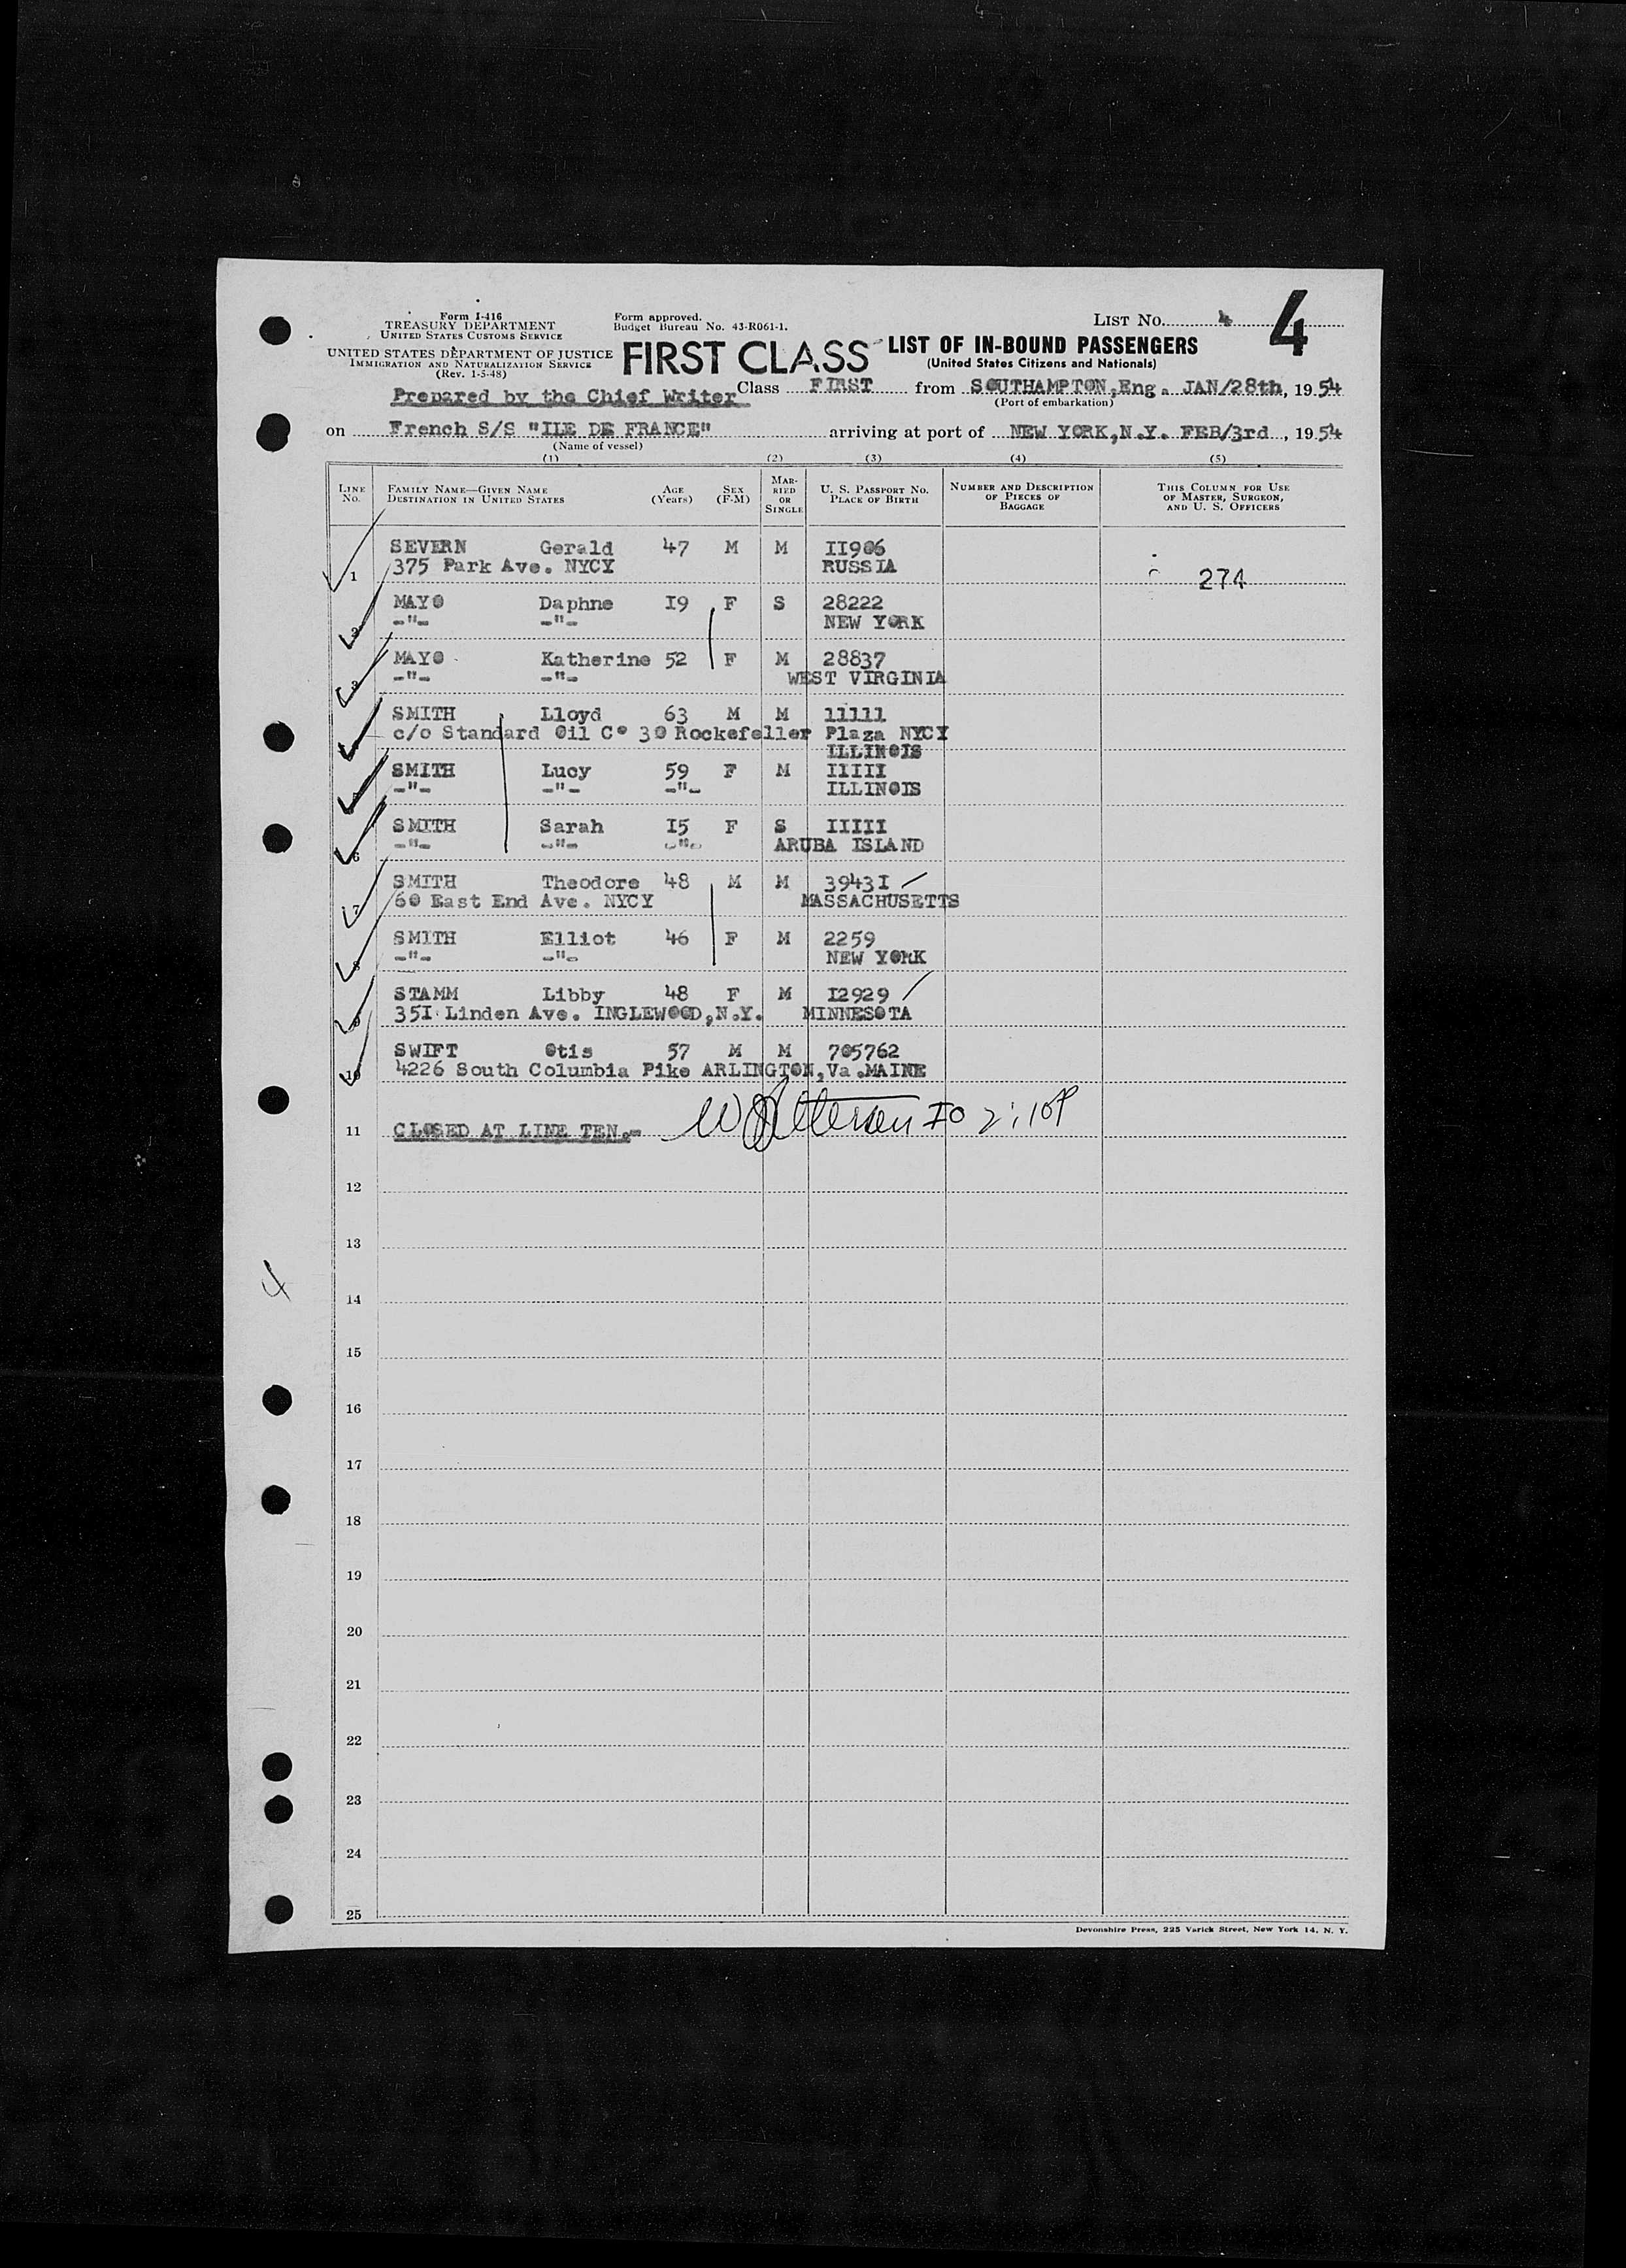 Form I-416
TREASURY DEPARTMENT
UNITED STATES CUSTOMS SERVICE
UNITED STATES DEPARTMENT OF JUSTICE
IMMIGRATION AND NATURALIZATION SERVICE
(Rev. 1-5-48)
Form approved.
Budget Bureau No. 43-R061-1.
LIST NO. 4 4
FIRST CLASS LIST OF IN-BOUND PASSENGERS
(United States Citizens and Nationals)
Prepared by the Chief Writer Class FIRST from SOUTHAMPTON,Eng. JAN/28th, 1954
(Port of embarkation)
on French S/S "ILE DE FRANCE" arriving at port of NEW YORK,N.Y. FEB/3rd, 1954
(Name of vessel)
(1) (2) (3) (4) (5)
LINE NO. FAMILY NAME—GIVEN NAME DESTINATION IN UNITED STATES AGE (Years) SEX (F-M) MARRIED OR SINGLE U. S. PASSPORT NO. PLACE OF BIRTH NUMBER AND DESCRIPTION OF PIECES OF BAGGAGE THIS COLUMN FOR USE OF MASTER, SURGEON, AND U. S. OFFICERS
SEVERN Gerald 47 M M II906
1 375 Park Ave. NYCY RUSSIA 274
MAYO Daphne I9 F S 28222
2 -"- -"- NEW YORK
MAYO Katherine 52 F M 28837
3 -"- -"- WEST VIRGINIA
SMITH Lloyd 63 M M 11111
c/o Standard Oil C° 30 Rockefeller Plaza NYCY
ILLINOIS
SMITH Lucy 59 F M IIIII
5 -"- -"- -"- ILLINOIS
SMITH Sarah I5 F S IIIII
6 -"- -"- -"- ARUBA ISLAND
SMITH Theodore 48 M M 3943I
7 60 East End Ave. NYCY MASSACHUSETTS
SMITH Elliot 46 F M 2259
8 -"- -"- NEW YORK
STAMM Libby 48 F M I2929
9 35I Linden Ave. INGLEWOOD,N.Y. MINNESOTA
SWIFT Otis 57 M M 705762
10 4226 South Columbia Pike ARLINGTON,Va.MAINE
11 CLOSED AT LINE TEN.- IO 2:10P
12
13
4
14
15
16
17
18
19
20
21
22
23
24
25
Devonshire Press, 225 Varick Street, New York 14, N. Y.